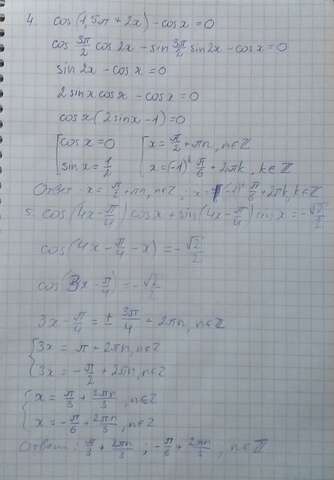 4. cos(1,5π + 2x) - cosx = 0
cos 3π/2 cos2x - sin 3π/2 sin2x - cosx = 0
sin2x - cosx = 0
2 sinx cosx - cosx = 0
cosx(2sinx - 1) = 0
[cosx = 0 [x = π/2 + πn, n∈Z
[sinx = 1/2 [x = (-1)^k π/6 + 2πk, k∈Z
Ответ: x = π/2 + πn, n∈Z; x = (-1)^k π/6 + 2πk, k∈Z
5. cos(4x - π/4) cosx + sin(4x - π/4) sinx = -√2/2
cos(4x - π/4 - x) = -√2/2
cos(3x - π/4) = -√2/2
3x - π/4 = ± 3π/4 + 2πn, n∈Z
{3x = π + 2πn, n∈Z
{3x = -π/2 + 2πn, n∈Z
{x = π/3 + 2πn/3, n∈Z
{x = -π/6 + 2πn/3, n∈Z
Ответ: π/3 + 2πn/3; -π/6 + 2πn/3, n∈Z